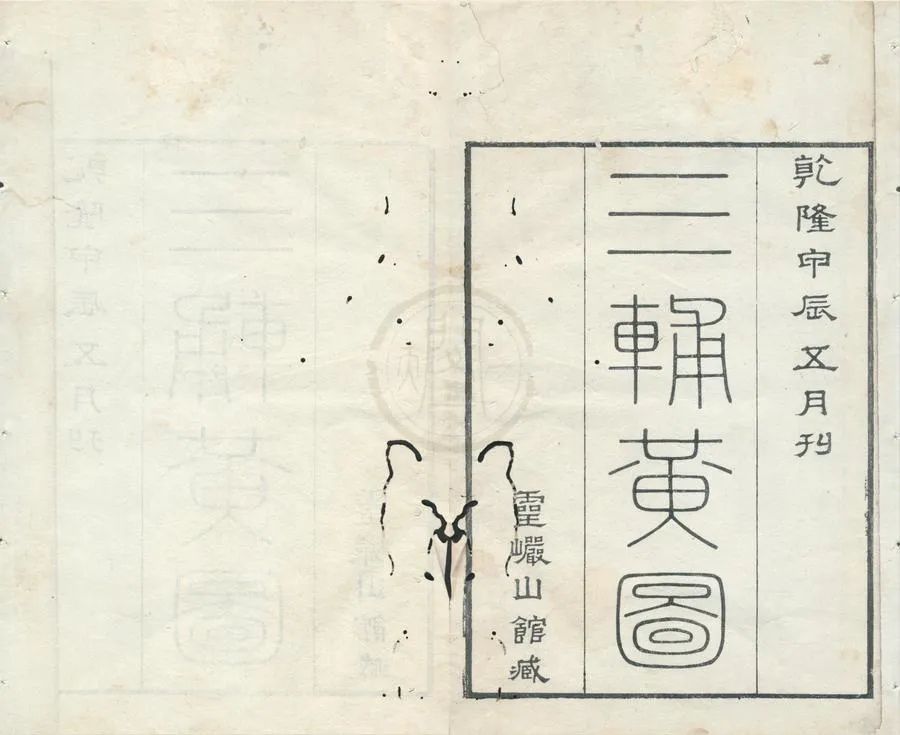 乾隆甲辰五月刊
三輔黃圖
靈巗山館藏